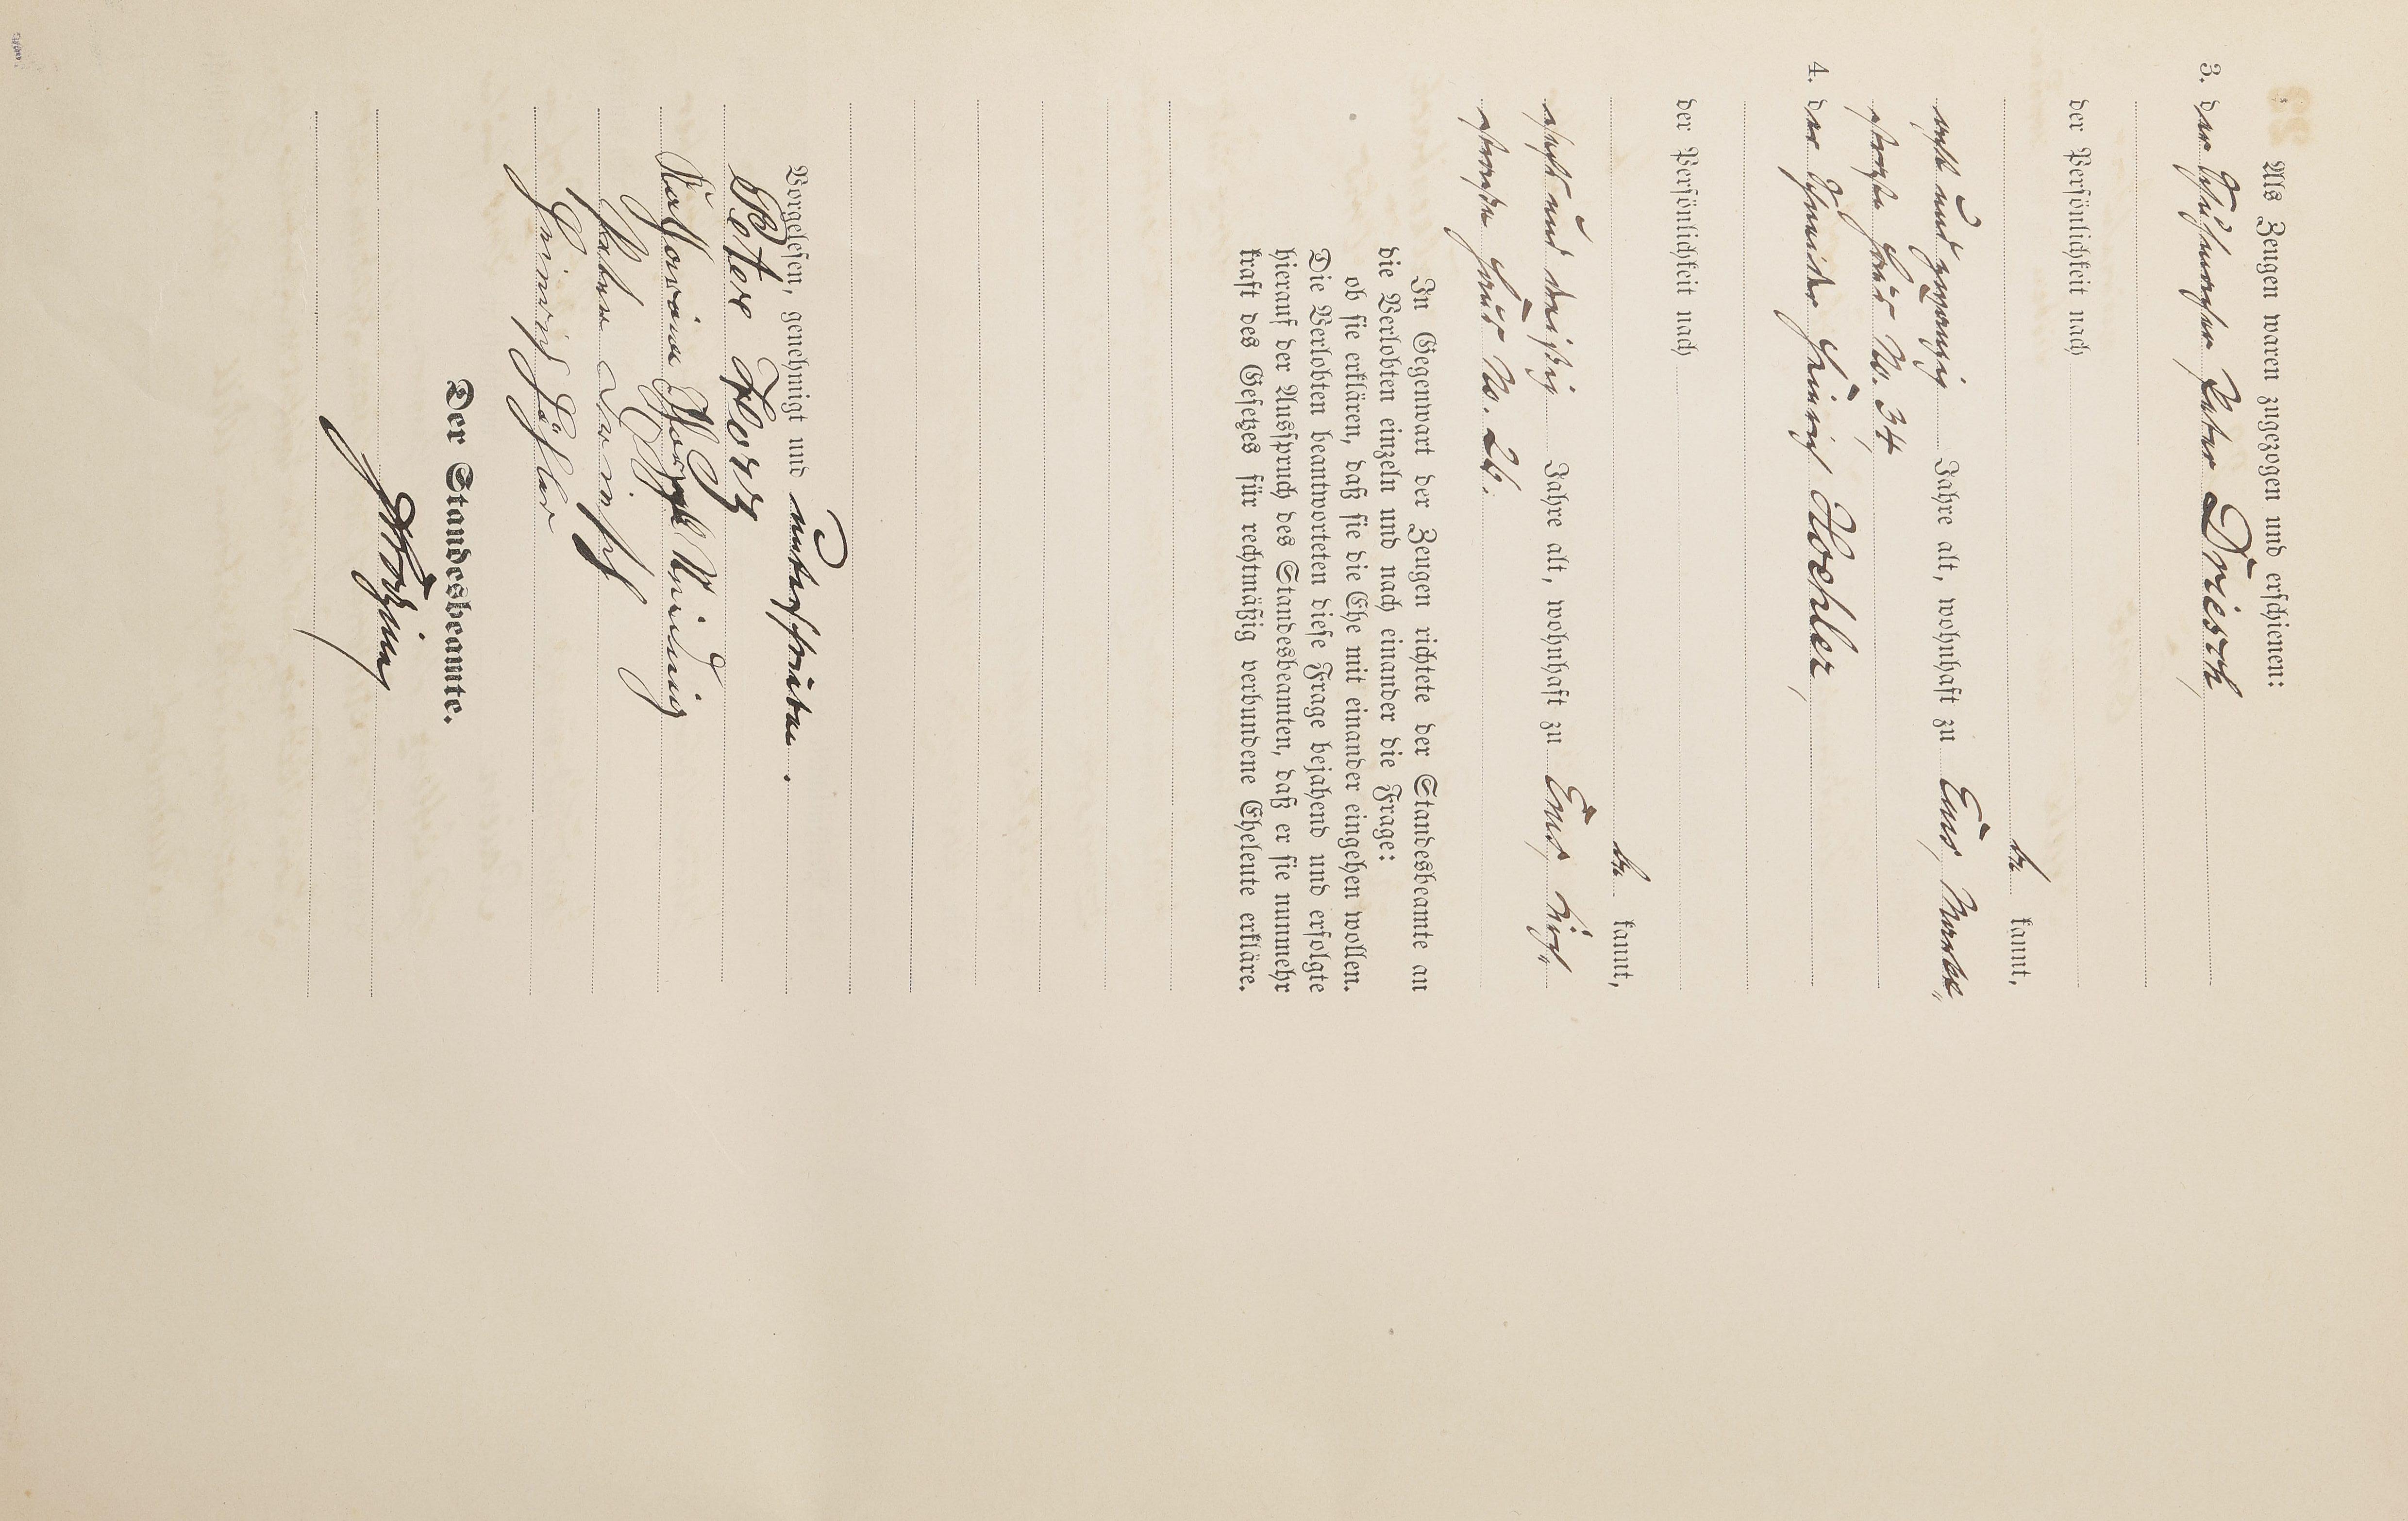 Als Zeugen waren zugezogen und erschienen:
3. der Schuhmacher Peter Driesch,
der Persönlichkeit nach
be kannt,
acht und zwanzig Jahre alt, wohnhaft zu Ems, Markt-
straße Haus No. 34,
4. der Schneider Heinrich Koehler,
der Persönlichkeit nach
be kannt,
acht und dreißig Jahre alt, wohnhaft zu Ems, Kirch-
straße Haus No. 26.
In Gegenwart der Zeugen richtete der Standesbeamte an
die Verlobten einzeln und nach einander die Frage:
ob sie erklären, daß sie die Ehe mit einander eingehen wollen.
Die Verlobten beantworteten diese Frage bejahend und erfolgte
hierauf der Ausspruch des Standesbeamten, daß er sie nunmehr
kraft des Gesetzes für rechtmäßig verbundene Eheleute erkläre.
Vorgelesen, genehmigt und unterschrieben.
Peter
Katharina
Peter Driesch
Heinrich Köhler
Der Standesbeamte.